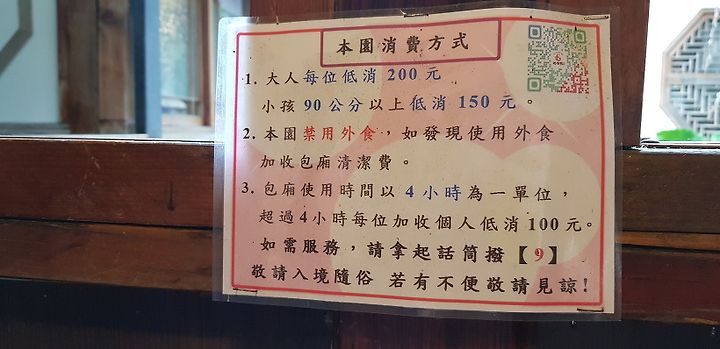 本園消費方式
1. 大人每位低消 200 元
小孩 90 公分以上低消 150 元。
2. 本園禁用外食，如發現使用外食
加收包廂清潔費。
3. 包廂使用時間以 4 小時為一單位，
超過4小時每位加收個人低消100元。
如需服務，請拿起話筒撥【9】
敬請入境隨俗 若有不便敬請見諒!